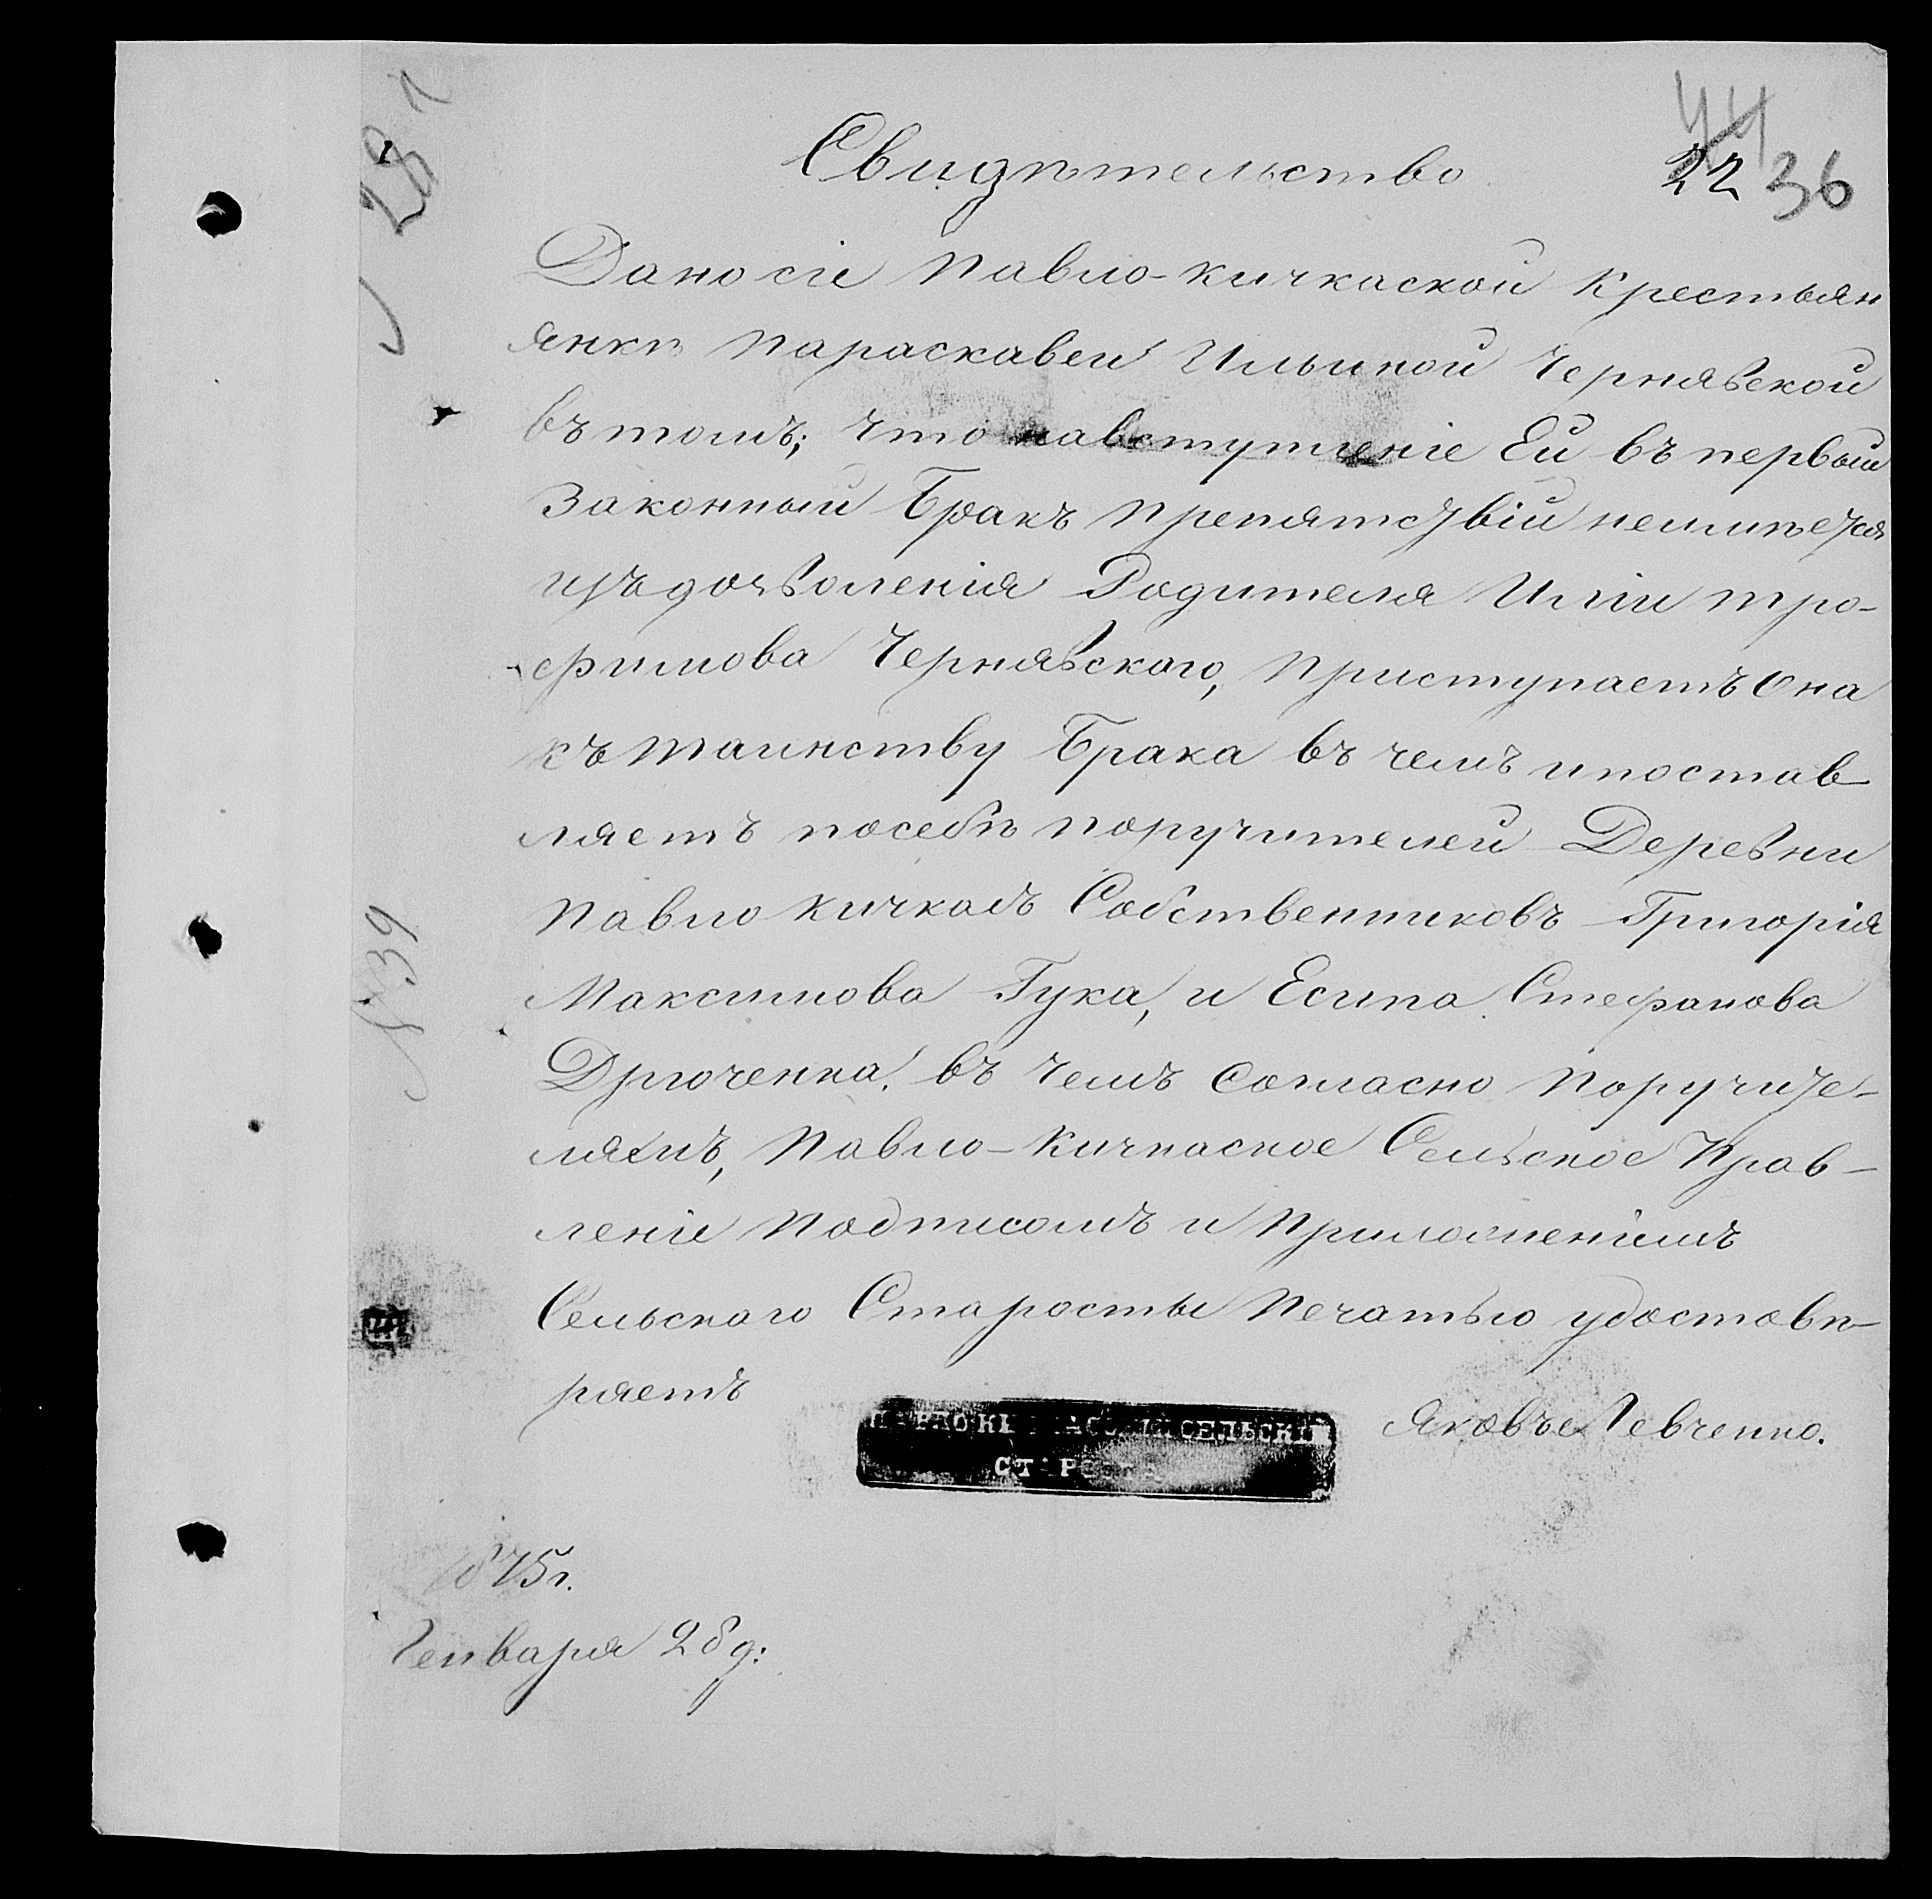 281
44
22 36
Свидѣтельство
Дано сіе Павло-Кичкаской Крестьян
янкѣ Параскавеи Ильиной Чернявской
въ томъ; что навступленіе Ей въ первый
Законный Бракъ Препятствій неимѣется
изъ дозволенія Родителя Иліи Тро-
фимова Чернявского, Приступаетъ Она
къ Таинству Брака въ чемъ и постав
ляетъ посебѣ Поручителей Деревни
Павло Кичкасъ Собственниковъ Григорія
Максимова Гука, и Есипа Стефанова
Дрюченка. въ чемъ согласно Поручите-
лямъ, Павло-Кичкаское Сельское Прав-
леніе Подписомъ и Приложеніемъ
Сельскаго Старосты Печатью удостовѣ-
ряетъ
№ 39
ПАВЛОКИЧКАССКІЙ СЕЛЬСКІЙ
СТАРОСТА
Яковъ Левченко.
1875 г.
Генваря 28 д: